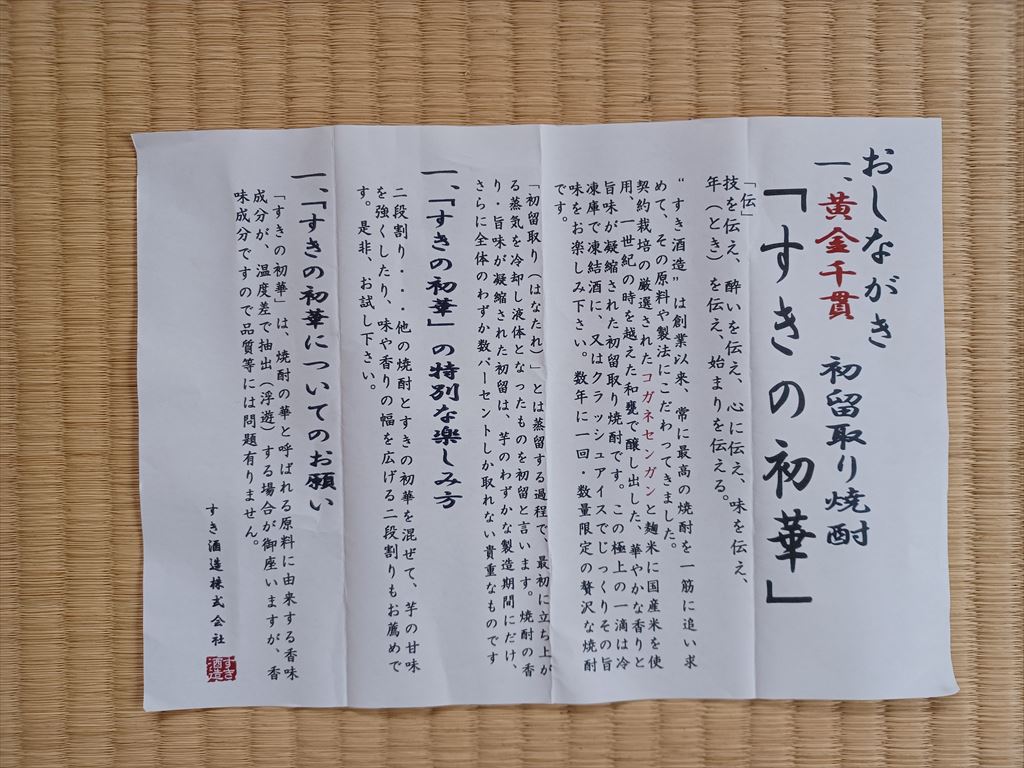 おしながき
一、黄金千貫　初留取り焼酎
「すきの初華」
「伝」
技を伝え、酔いを伝え、心に伝え、味を伝え、
年（とき）を伝え、始まりを伝える。
“すき酒造”は創業以来、常に最高の焼酎を一筋に追い求
めて、その原料や製法にこだわってきました。
契約栽培の厳選されたコガネセンガンと麹米に国産米を使
用、一世紀の時を越えた和甕で醸し出した、華やかな香りと
旨味が凝縮された初留取り焼酎です。この極上の一滴は冷
凍庫で凍結酒に、又はクラッシュアイスでじっくりその旨
味をお楽しみ下さい。数年に一回・数量限定の贅沢な焼酎
です。
「初留取り（はなたれ）」とは蒸留する過程で、最初に立ち上が
る蒸気を冷却し液体となったものを初留と言います。焼酎の香
り・旨味が凝縮された初留は、芋のわずかな製造期間にだけ、
さらに全体のわずか数パーセントしか取れない貴重なものです
一、「すきの初華」の特別な楽しみ方
二段割り・・・他の焼酎とすきの初華を混ぜて、芋の甘味
を強くしたり、味や香りの幅を広げる二段割りもお薦めで
す。是非、お試し下さい。
一、「すきの初華についてのお願い
「すきの初華」は、焼酎の華と呼ばれる原料に由来する香味
成分が、温度差で抽出（浮遊）する場合が御座いますが、香
味成分ですので品質等には問題有りません。
すき酒造株式会社
すき酒造